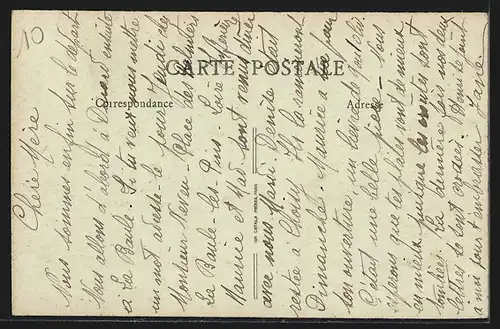 10
CARTE POSTALE
Correspondance
Adresse
Chère Mère
Nous sommes enfin sur le départ
Nous allons d'abord à Dinard ensuite
à La Baule. Si tu veux nous mettre
un mot adresse-le pour Jeudi chez
Monsieur Neveu. Place des Palmiers
La Baule-les-Pins. Loire Inférieure
Maurice et Mad sont venus dîner
avec nous Mardi. Denise était
restée à Choisy. Ils la ramèneront
Dimanche. Maurice a fait pour
son ouverture un lièvre de
C'était une belle pièce. Nous
espérons que tes plaies vont de mieux
en mieux, puisque les croûtes sont
tombées. La dernière fois nos deux
lettres se sont croisées. Denis se joint
à moi pour t'embrasser